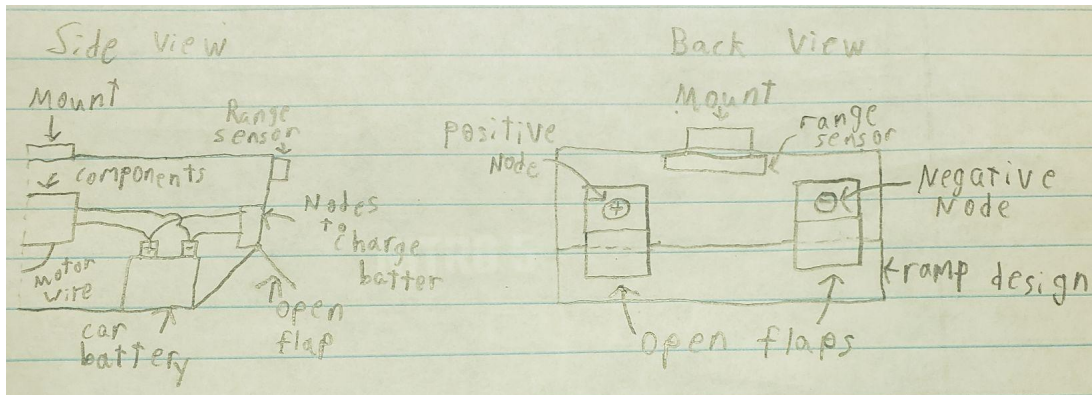 Side View
Mount
Range
sensor
components
Nodes
to
charge
batter
motor
wire
car
battery
open
flap
Back View
Mount
positive
Node
range
sensor
+
-
Negative
Node
ramp design
open flaps